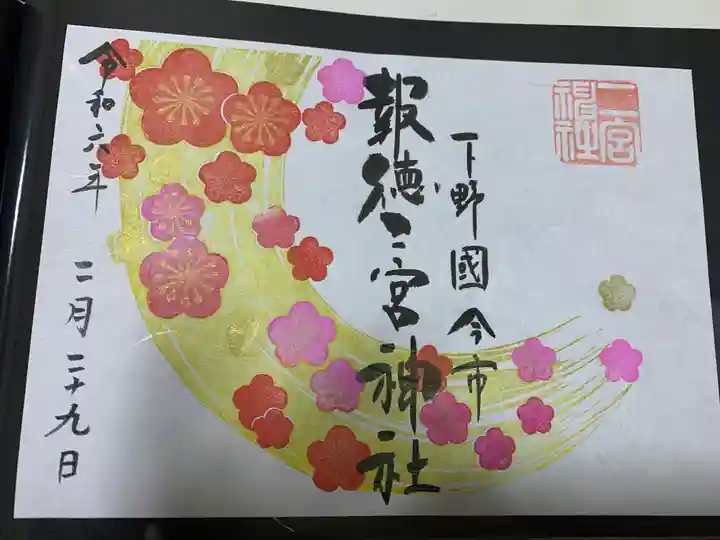 二宮
神社
下野國今市
報徳二宮神社
令和六年
二月二十九日